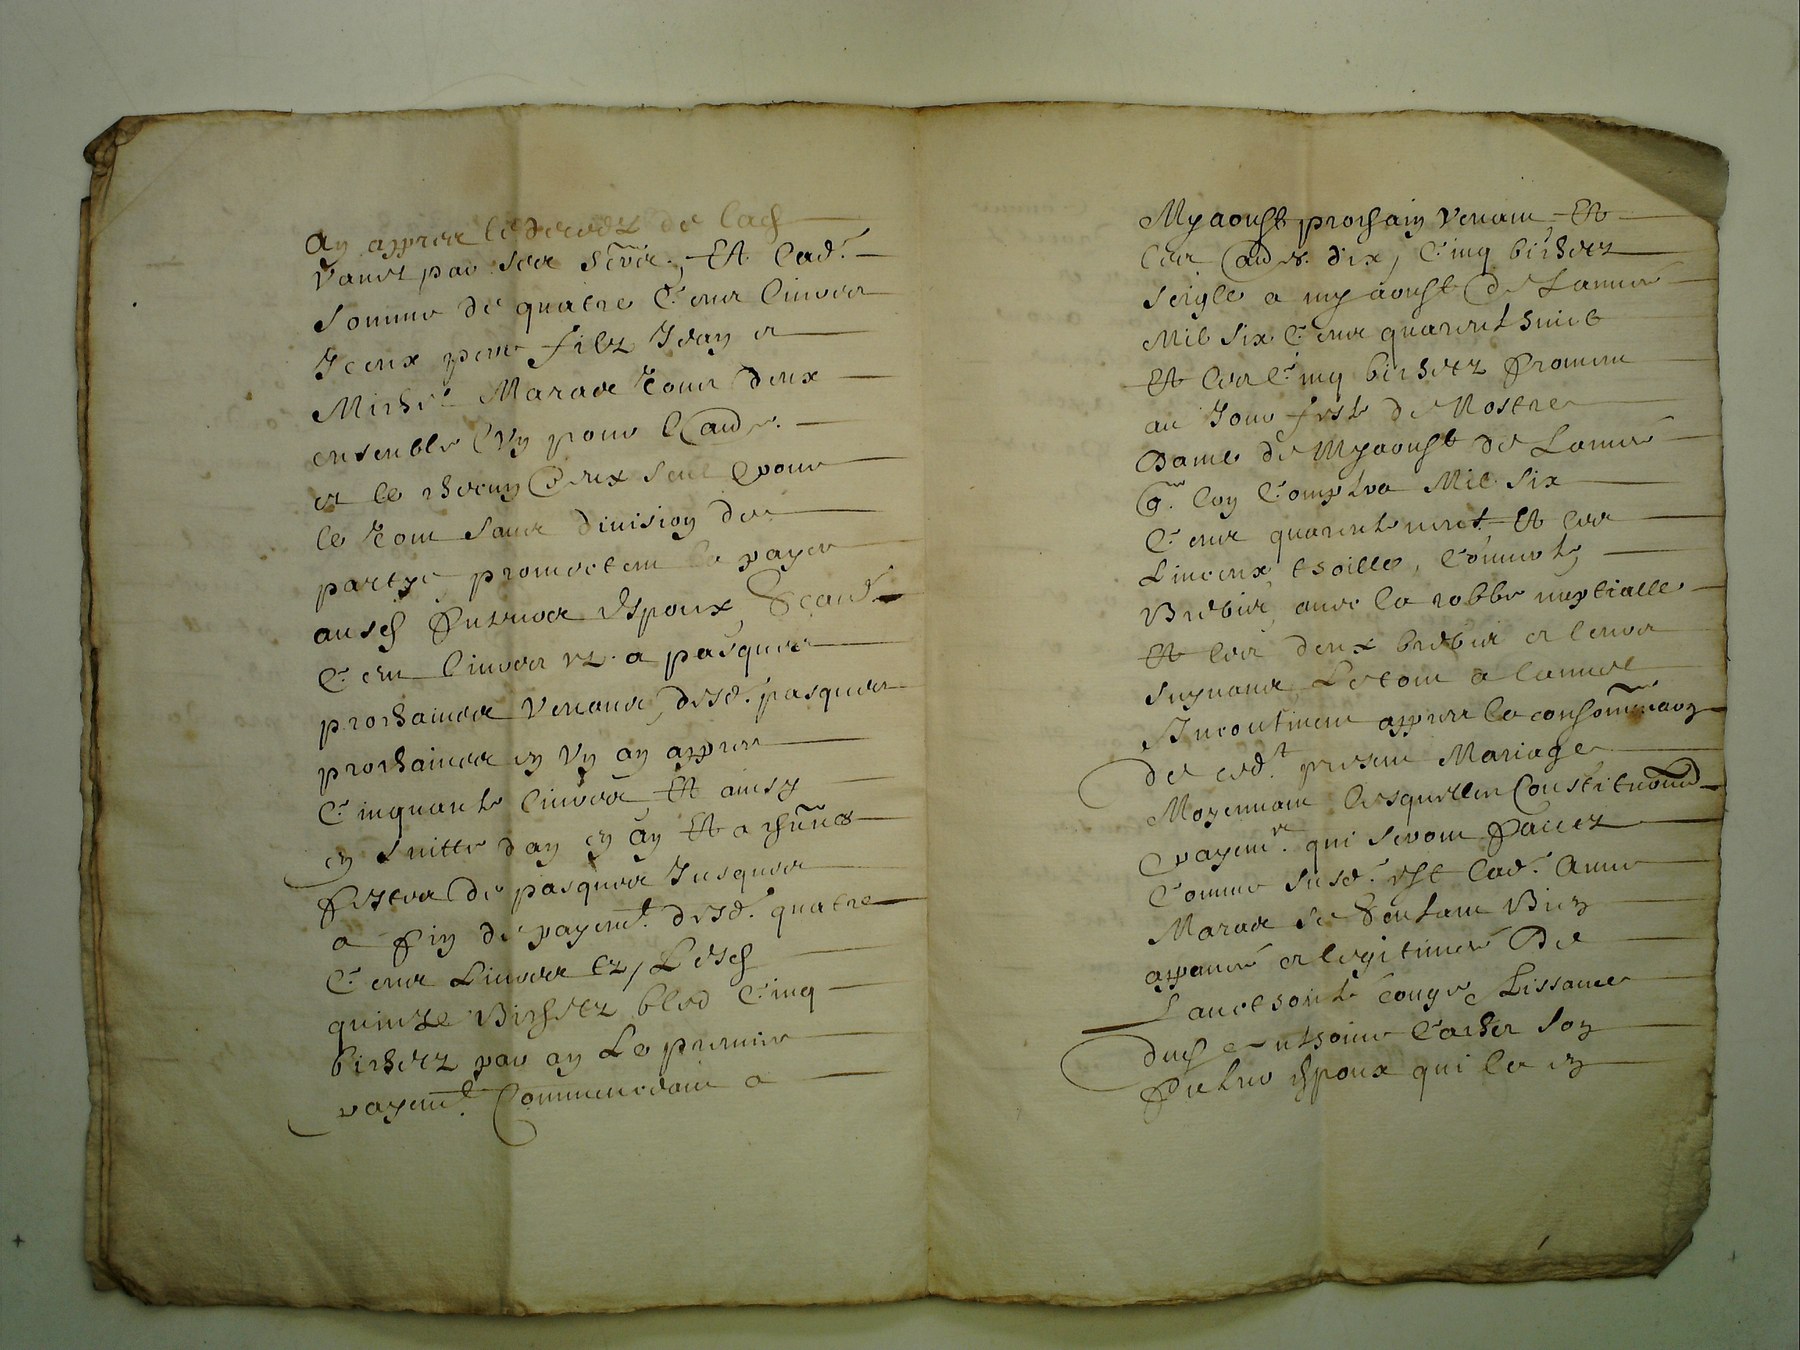 an appres le decedz de lad
vant par ses
somme de quatre Cens livres
Iceux pere filz Jean et
Marade tous deux
ensemble l'un pour l'aude.
et le chacun d'eux seul pour
le tout sans division de
partye promectent la payer
ausd futurs espoux Scavoir
Cent livres tz. a pasques
prochaines venant, desd. pasques
prochaines en un an appres
Cinquante livres Et ainsy
en suitte d'an en an Et a
festes de pasques Jusques
a fin de payemt. desd. quatre
Cens Livres tz, Lesd
quinze Bichetz bled Cinq
bichetz par an Le premier
payemt. Commencdant a
Myaoust prochain venant Et
les aud. dix, Cinq bichetz
seigle a myaoust de Lannee
Mil six Cens quarente huict
Et les Cinq bichetz froment
au Jour feste de Nostre
Dame de Myaoust de Lannee
qn. lon Comptera Mil Six
Cens quarente neuf Et les
Linceux, toille,
Brebis, avec la robbe nuptialle
Et les deux brebis et leurs
suyvans Le tout a lannee
Incontinent appres la consommaon
de ced.t present Mariage
Moyennant lesquelles Constituons
payemt. qui seront faictz
Comme susd. est lad. Anne
Marade se Contant Bien
appanee et legitimee De
Lauctorite conge Lissance
dud Anthoine son
futur espoux qui la en